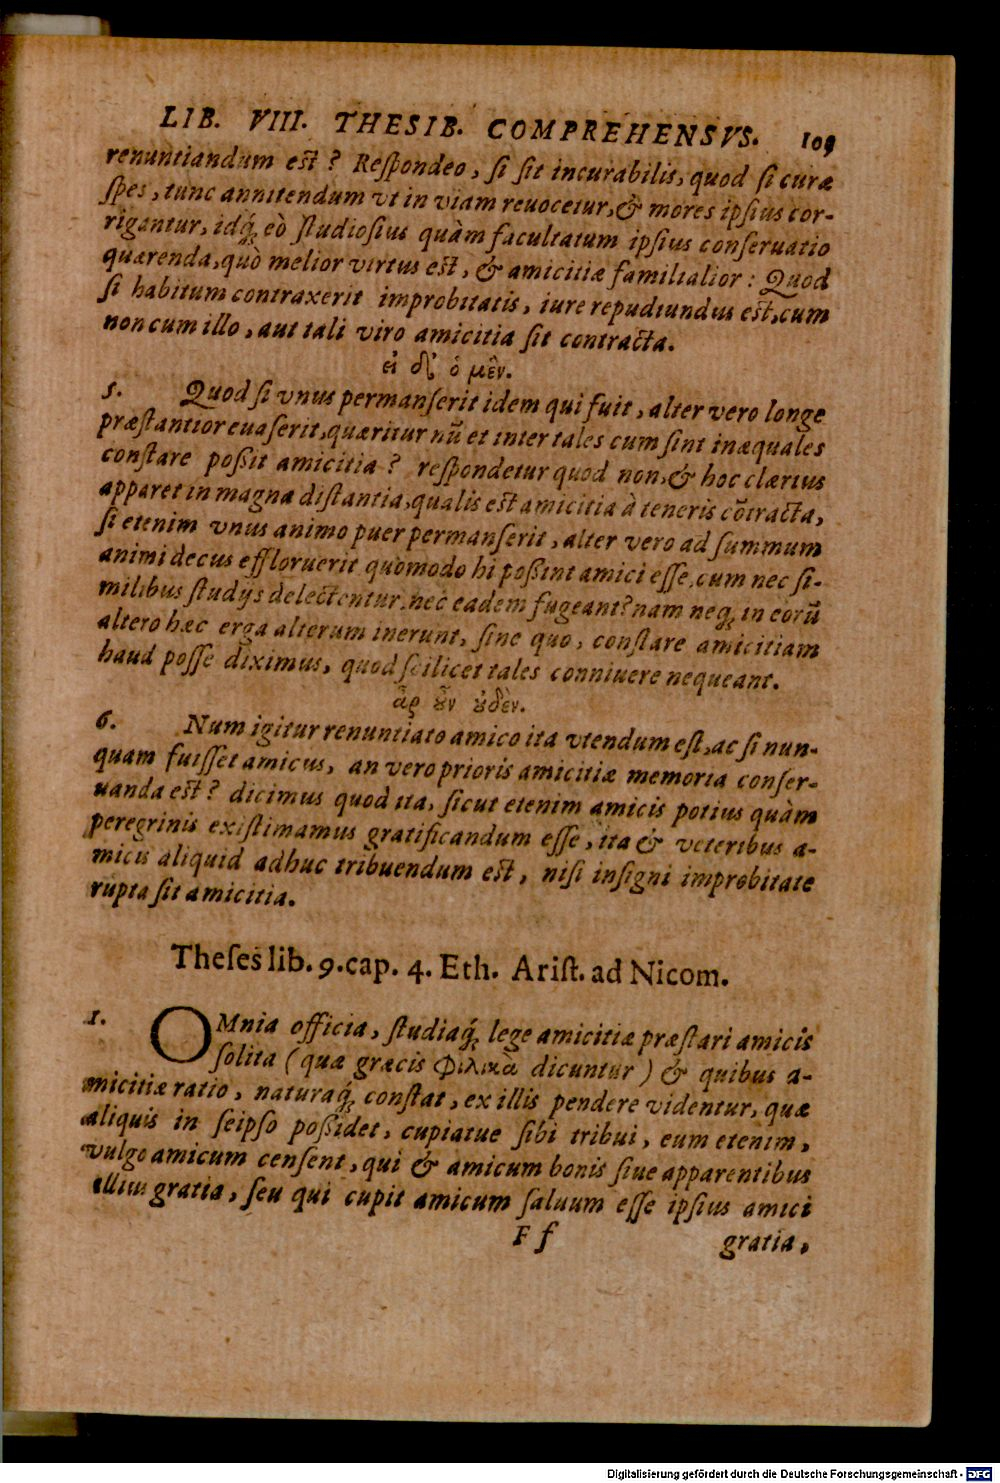 LIB. VIII. THESIB. COMPREHENSVS. 109
renuntiandum est? Respondeo, si sit incurabilis, quod si curæ
spes, tunc annitendum vt in viam reuocetur, & mores ipsius cor-
rigantur, idq́; eò studiosius quàm facultatum ipsius conseruatio
quærenda, quò melior virtus est, & amicitiæ familialior: Quod
si habitum contraxerit improbitatis, iure repudiundus est, cum
non cum illo, aut tali viro amicitia sit contracta.
εἰ δ' ὁ μὲν.
5. Quod si vnus permanserit idem qui fuit, alter vero longe
præstantior euaserit, quæritur nū et inter tales cum sint inæquales
constare poßit amicitia? respondetur quod non, & hoc clærius
apparet in magna distantia, qualis est amicitia à teneris cōtracta,
si etenim vnus animo puer permanserit, alter vero ad summum
animi decus effloruerit quomodo hi poßint amici esse, cum nec si-
milibus studijs delectentur, nec eadem fugeant? nam neq; in eorū
altero hæc erga alterum inerunt, sine quo, constare amicitiam
haud posse diximus, quod scilicet tales conniuere nequeant.
ἆρ' οὖν οὐδὲν.
6. Num igitur renuntiato amico ita vtendum est, ac si nun-
quam fuisset amicus, an vero prioris amicitiæ memoria conser-
uanda est? dicimus quod ita, sicut etenim amicis potius quàm
peregrinis existimamus gratificandum esse, ita & veteribus a-
micis aliquid adhuc tribuendum est, nisi insigni improbitate
rupta sit amicitia.
Theses lib. 9. cap. 4. Eth. Arist. ad Nicom.
1. OMnia officia, studiaq́; lege amicitiæ præstari amicis
solita (quæ græcis Φιλικὰ dicuntur) & quibus a-
micitiæ ratio, naturaq́; constat, ex illis pendere videntur, quæ
aliquis in seipso poßidet, cupiatue sibi tribui, eum etenim,
vulgo amicum censent, qui & amicum bonis siue apparentibus
illius gratia, seu qui cupit amicum saluum esse ipsius amici
F f gratia,
Digitalisierung gefördert durch die Deutsche Forschungsgemeinschaft - DFG